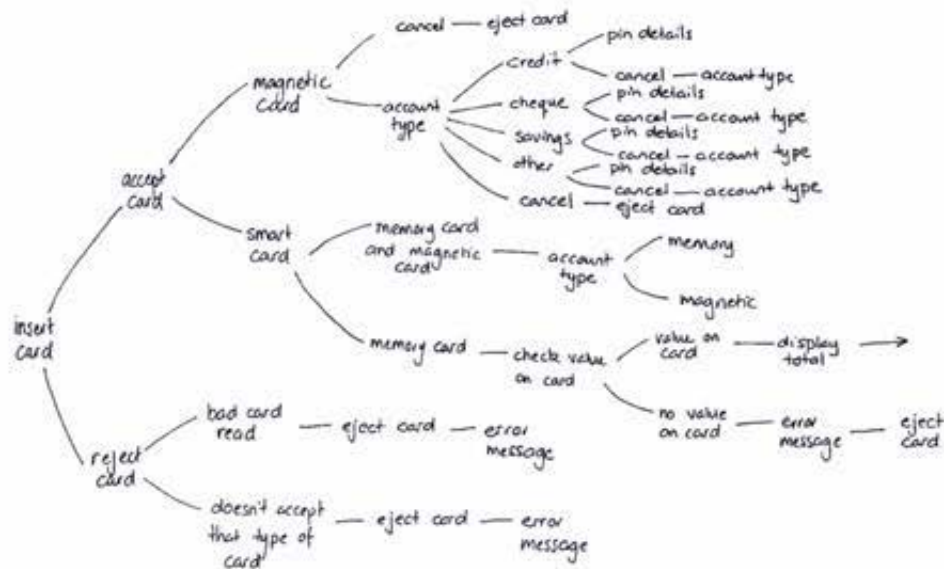 cancel — eject card
pin details
credit
magnetic
card
cancel — account type
account
type
cheque
pin details
cancel — account type
savings
pin details
cancel — account type
other
pin details
cancel — account type
cancel — eject card
accept
card
smart
card
memory card
and magnetic
card
account
type
memory
magnetic
insert
card
memory card
check value
on card
value on
card
display
total
no value
on card
error
message
eject
card
reject
card
bad card
read
eject card
error
message
doesn't accept
that type of
card
eject card
error
message